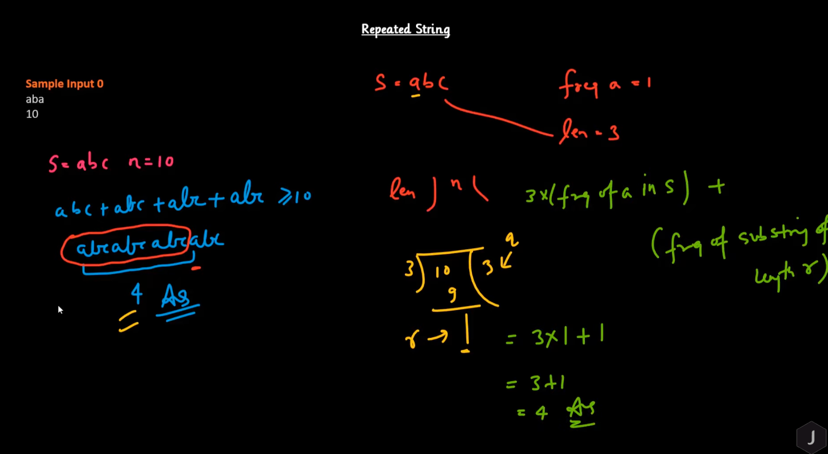 Repeated String
Sample Input 0
aba
10
S = abc n = 10
abc + abc + abc + abc ≥ 10
abcabcabcabc
4 Ans
S = abc
freq a = 1
len = 3
len ) n (
3×(freq of a in S) +
(freq of substring of
length r)
q
3 ) 10 ( 3
9
r → 1
= 3×1 + 1
= 3+1
= 4 Ans
J